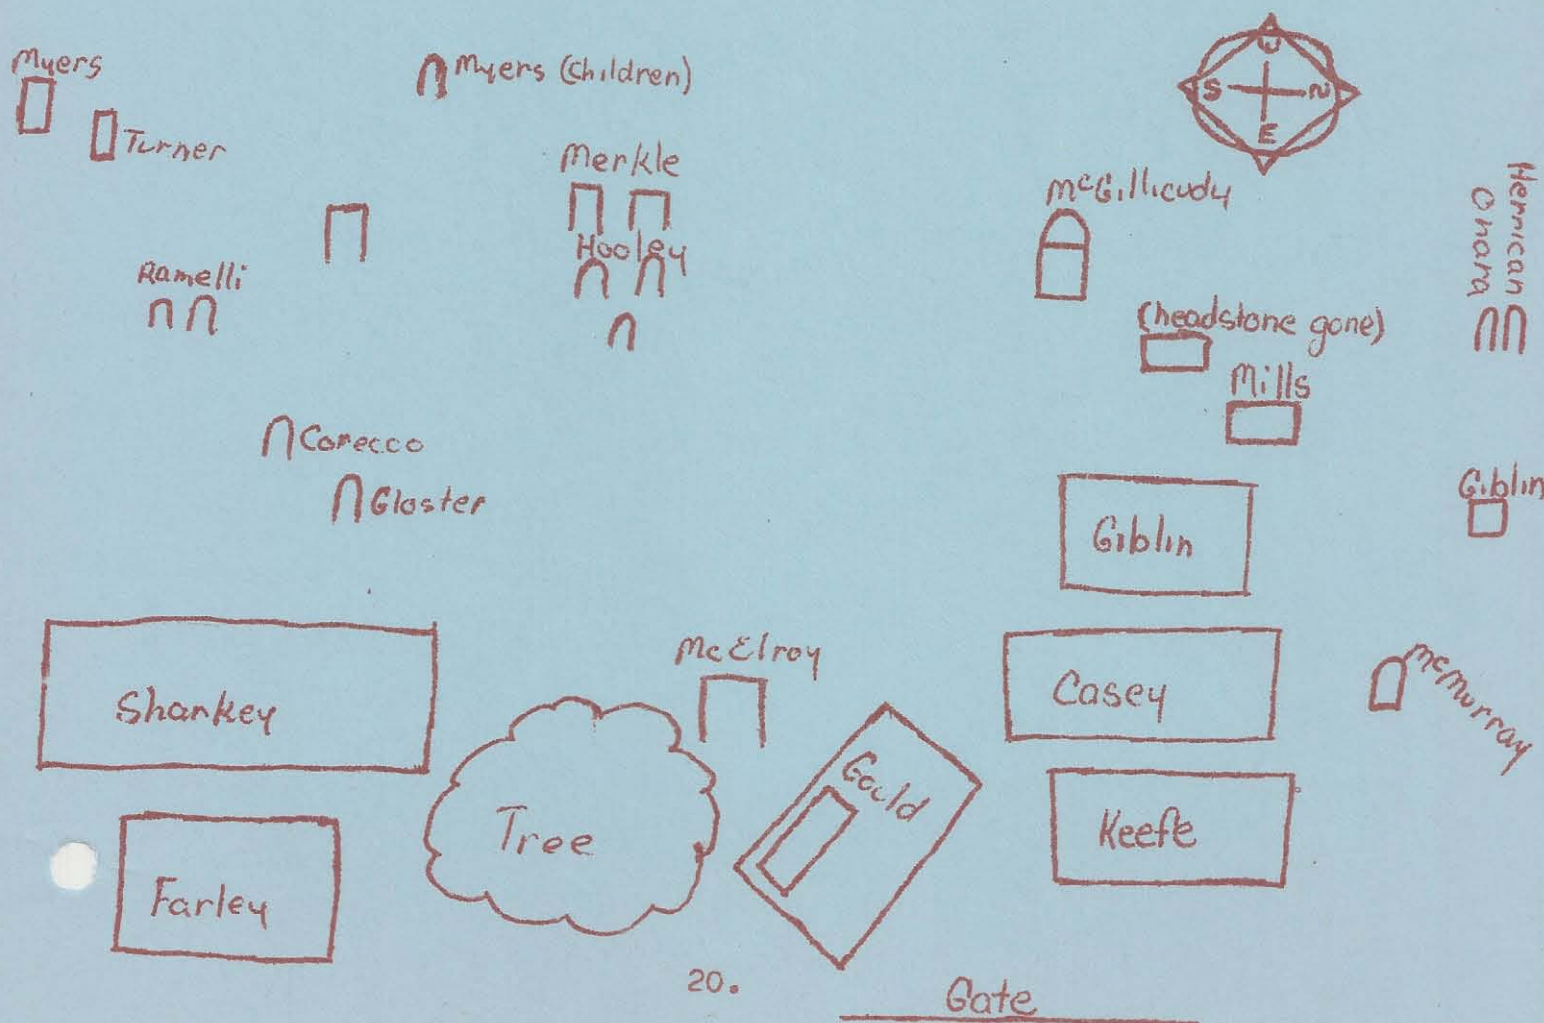 Myers
Myers (Children)
W
S N
E
Turner
Merkle
McGillicudy
Herrican
Ohara
Hooley
Ramelli
(headstone gone)
Mills
Corecco
Gloster
Giblin
Giblin
McElroy
Casey
McMurray
Sharkey
Gould
Tree
Keefe
Farley
20.
Gate